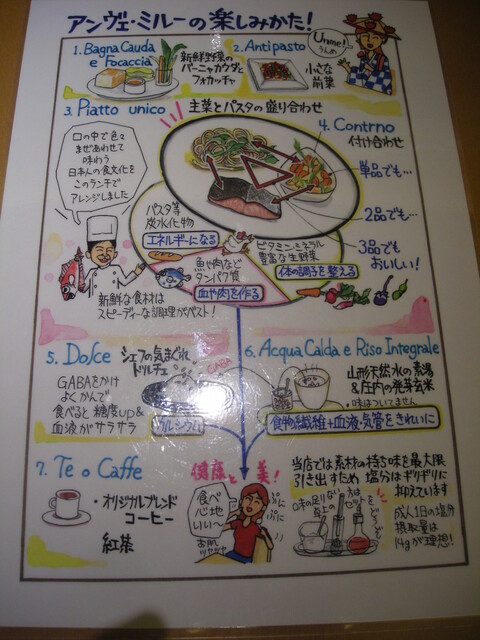 アンヴェ・ミルーの楽しみかた!
1. Bagna Cauda
e Focaccia
新鮮野菜の
バーニャカウダと
フォカッチャ
2. Antipasto
小さな
前菜
Unme!
うんめ
3. Piatto unico
主菜とパスタの盛り合わせ
4. Contrno
付け合わせ
単品でも…
2品でも…
3品でも
おいしい!
口の中で色々
まぜあわせて
味わう
日本人の食文化を
このランチで
アレンジしました
パスタ等
炭水化物
エネルギーになる
魚や肉など
タンパク質
血や肉を作る
ビタミン・ミネラル
豊富な生野菜
体の調子を整える
新鮮な食材は
スピーディーな調理がベスト!
5. Dolce
シェフの気まぐれ
ドルチェ
GABAをかけ
よくかんで
食べると糖度up&
血液がサラサラ
カルシウム
6. Acqua Calda e Riso Integrale
山形天然水の素湯
&庄内の発芽玄米
・味はついてません
食物繊維+血液・気管をきれいに
7. Te o Caffe
・オリジナルブレンド
コーヒー
紅茶
健康と美!
食べ
心地
いい〜
お肌
ツヤツヤ
ぷに
ぷに
当店では素材の持ち味を最大限
引き出すため 塩分はギリギリに
抑えています
成人1日の塩分
摂取量は
14gが理想!